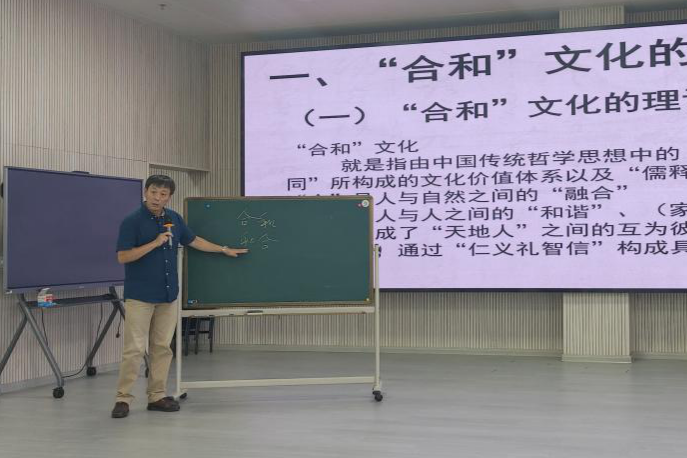 一、“合和”文化的
（一）“合和”文化的理
“合和”文化
就是指由中国传统哲学思想中的
同”所构成的文化价值体系以及“儒释
人与自然之间的“融合”
人与人之间的“和谐”、（家
成了“天地人”之间的互为彼
；通过“仁义礼智信”构成具
合和
和合